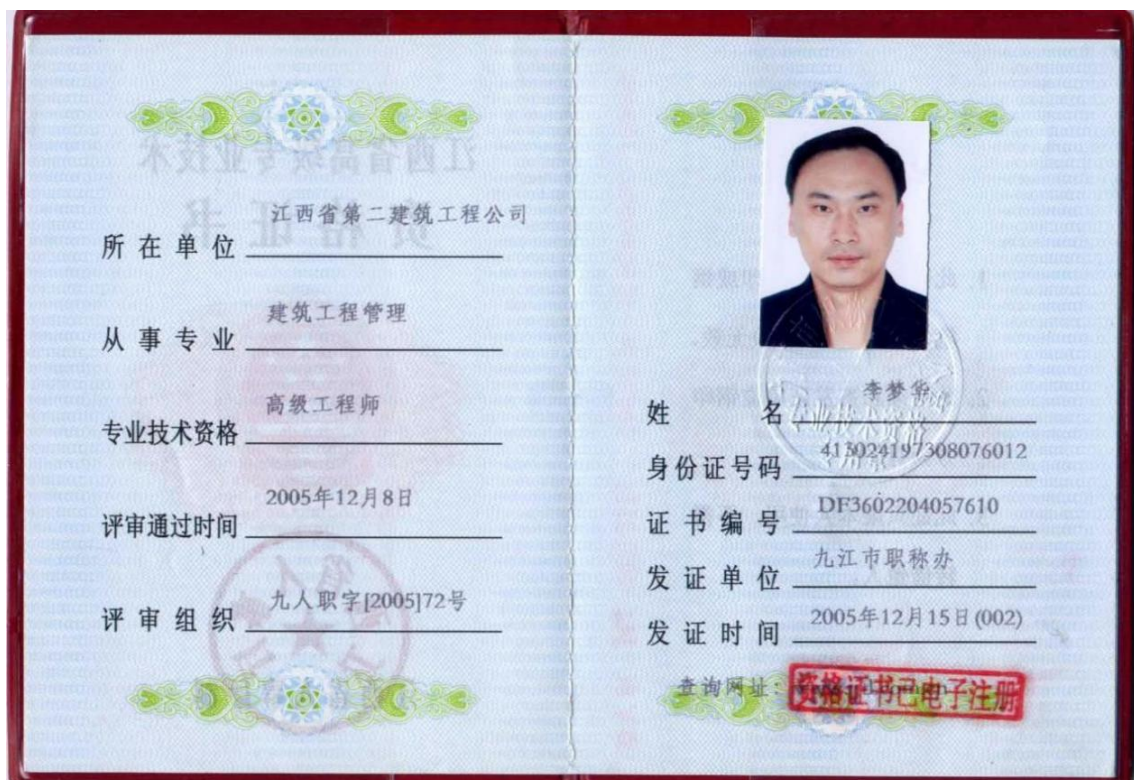 所在单位 江西省第二建筑工程公司
从事专业 建筑工程管理
专业技术资格 高级工程师
评审通过时间 2005年12月8日
评审组织 九人职字[2005]72号
专业技术资格
姓名 李梦华
身份证号码 413024197308076012
证书编号 DF3602204057610
发证单位 九江市职称办
发证时间 2005年12月15日(002)
查询网址:
资格证书已电子注册